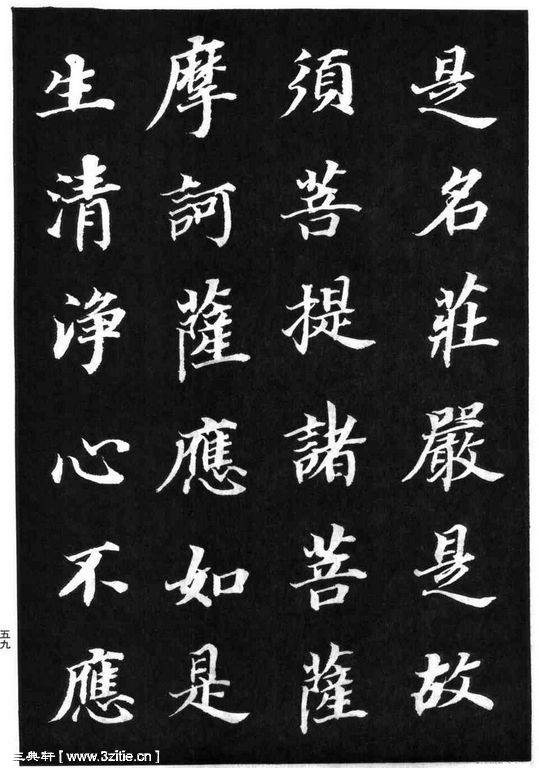 是名莊嚴是故
須菩提諸菩薩
摩訶薩應如是
生清淨心不應
五九
三典轩[www.3zitie.cn]